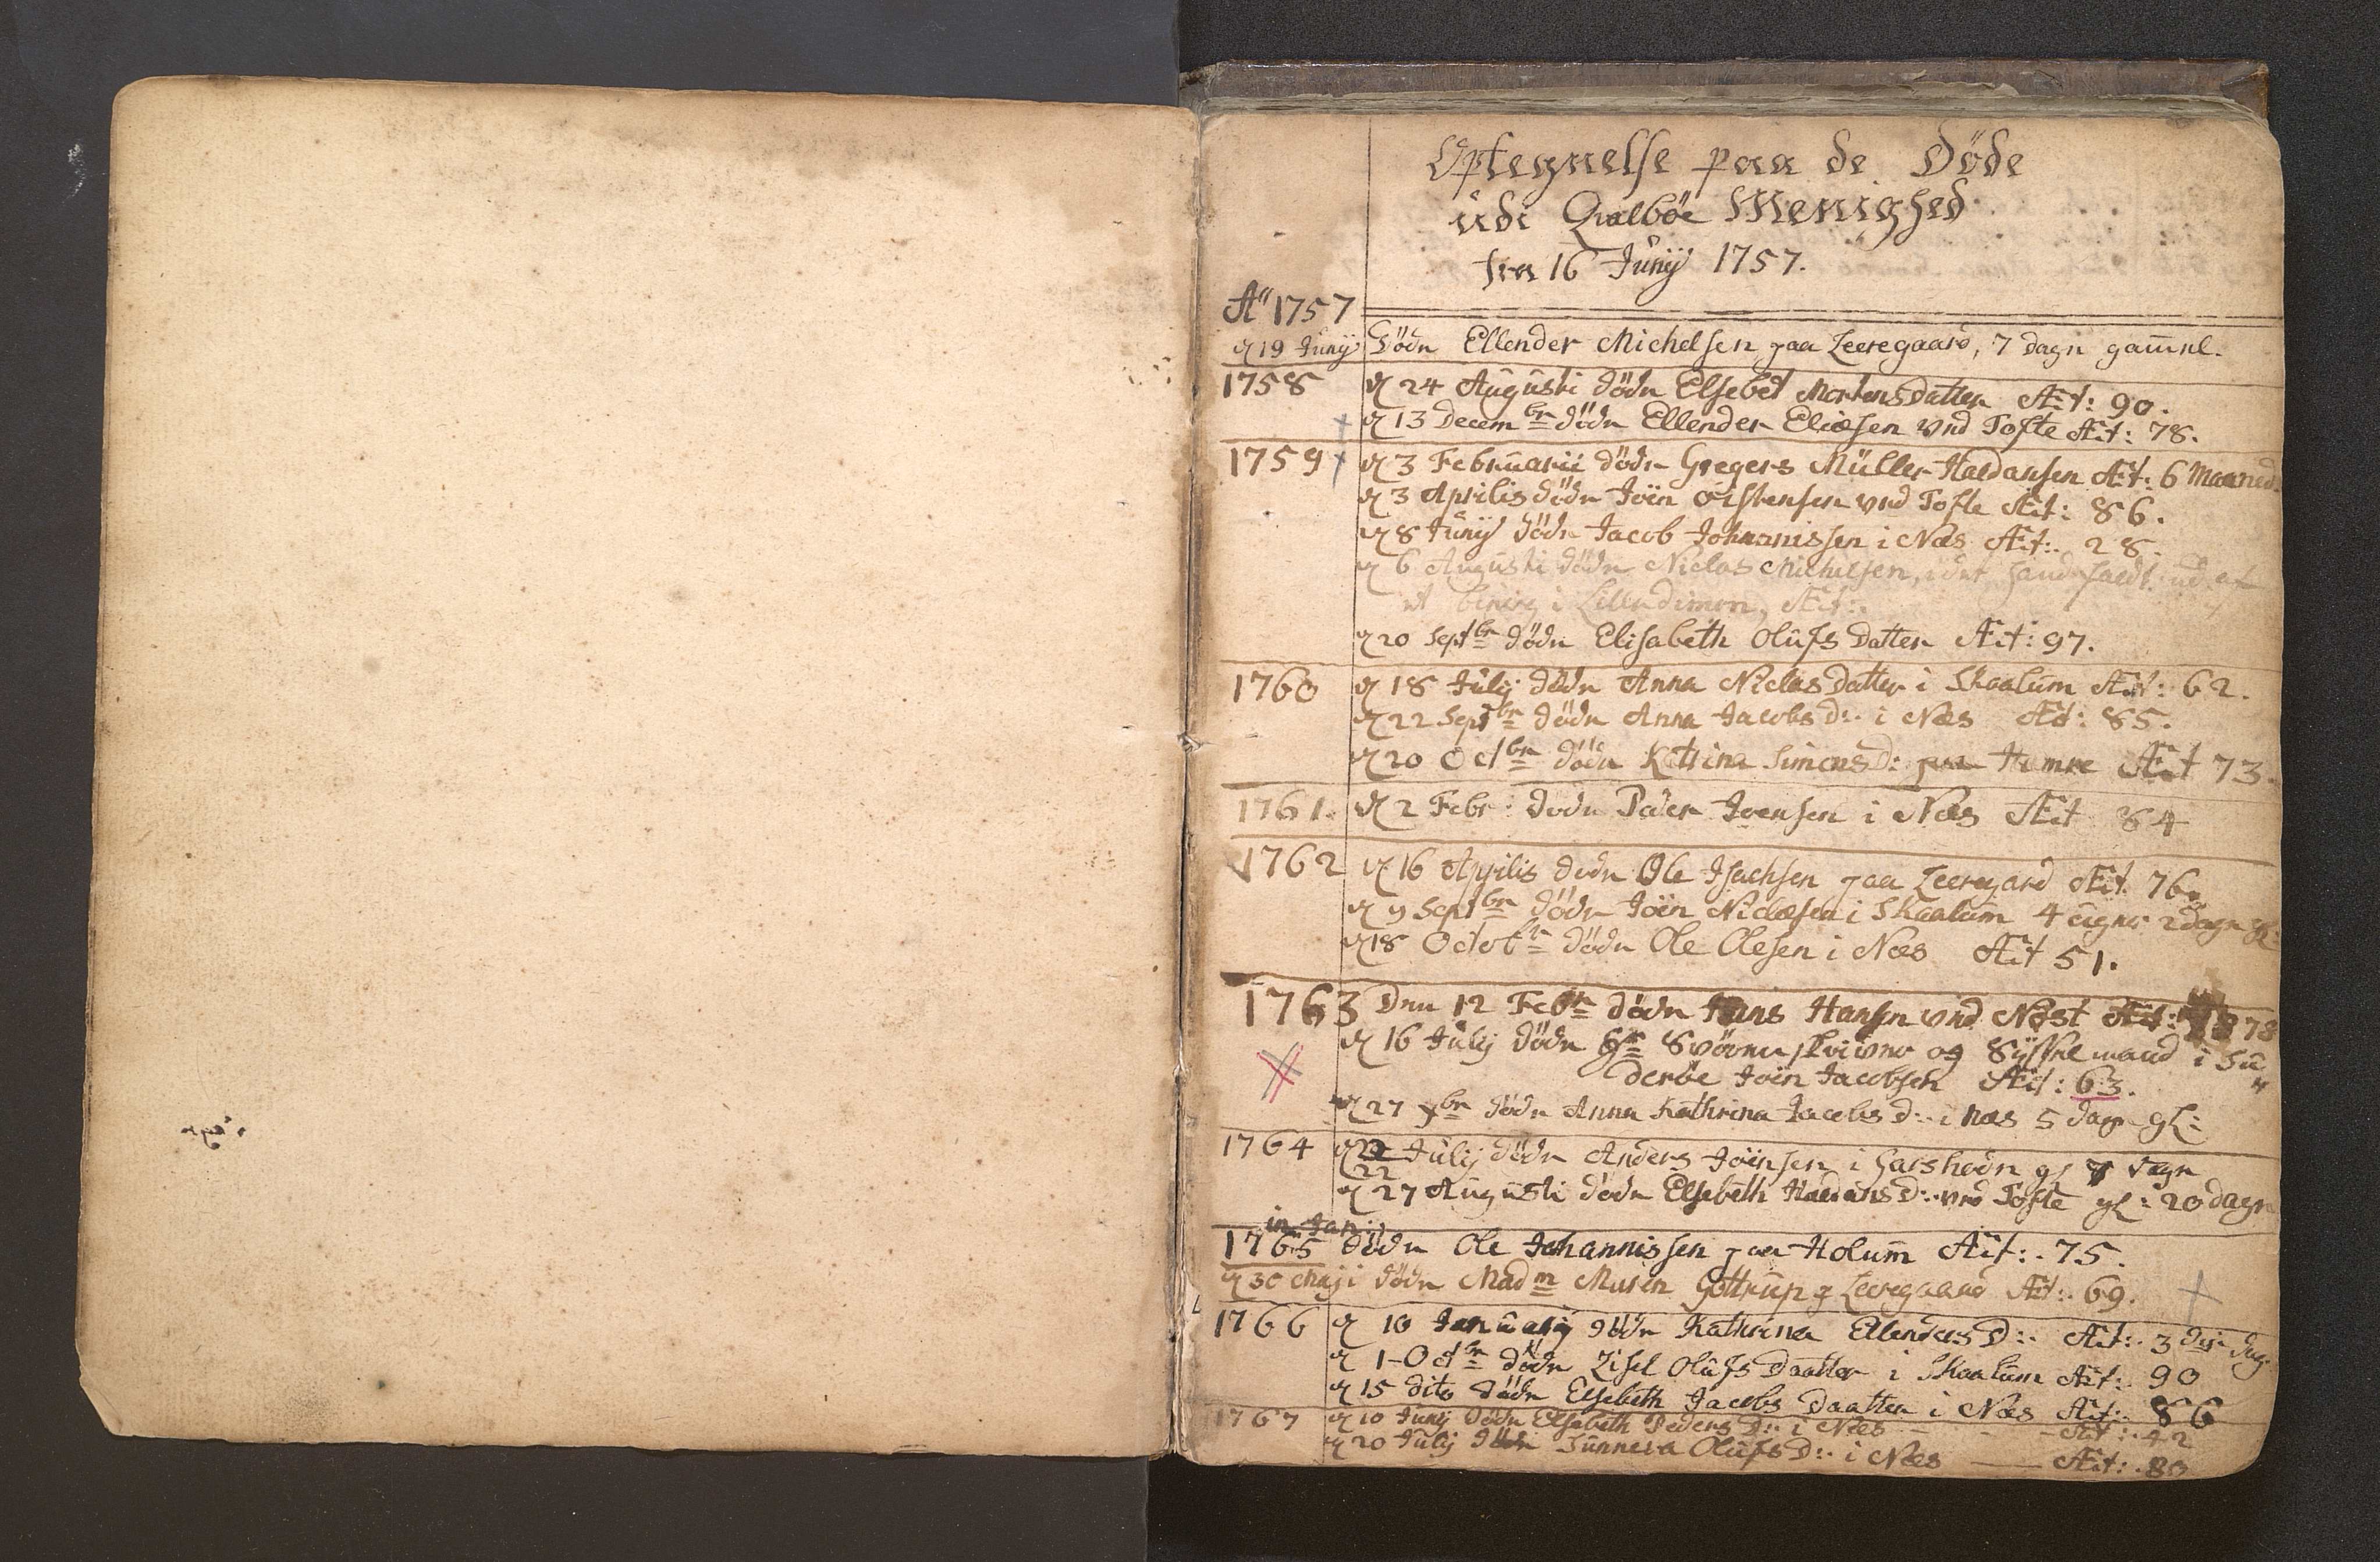 Optegnelse paa de Döde
udi Qvalböe Menighed
fra 16 Junij 1757.
Aº 1757
d 19 Junij Döde Ellender Michelsen paa Leeregaard, 7 dage gammel.
1758 d 24 Augusti döde Elsebet Mortensdatter Æt: 90.
d 13 Decembr döde Ellender Eliæsen ved Tofte Æt: 78.
1759 d 3 Februarii döde Gregers Müller Haldansen Æt: 6 Maaned
d 3 Aprilis döde Joen Öistensen ved Tofte Æt: 86.
d 8 Junij döde Jacob Johannissen i Næs Æt: 28.
d 6 Augusti döde Niclas Michelsen, i det hand faldt ud af
et bierg i Lilledimon, Æt:
d 20 Septbr döde Elisabeth Olufs Datter Æt: 97.
1760 d 18 Julij döde Anna Niclas Datter i Skaalum Æt: 62.
d 22 Septbr döde Anna Jacobs d: i Næs Æt: 85.
d 20 Octbr döde Katrina Simons D: paa Hamre Æt 73.
1761. d 2 Febr: döde Poder Joensen i Næs Æt 84
1762 d 16 Aprilis döde Ole Isachsen paa Leeregard Æt. 76.
d 9 Septbr döde Joen Niclæsen i Skaalum 4 uger 2 dage gl
d 18 Octobr döde Ole Olesen i Næs Æt 51.
1763 Den 12 Febr döde Hans Hansen ved Nøst Æt: 78
d 16 Julij döde Sr Svorne skriver og Sysselmand i Su
deröe Joen Jacobsen Æt: 63.
d 27 9br döde Anna Kathrina Jacobs d: i næs 5 dage gl:
1764 d 22 Julij döde Anders Joensen i gl 7 dage
22
d 27 Augusti döde Elsebeth Haldans D: ved Tofte gl: 20 dage
in Jan:
1765 döde Ole Johannissen paa Holum Æt: 75.
d 30 Maji döde Madm Maren Gottrup p Leeregaard Æt: 69.
1766 d 10 Januarij döde Kathrina Ellenders D: Æt: 3 dag
d 1 Octbr döde Zisel Olufs Daatter i Skaalum Æt: 90
d 15 dito döde Elsebeth Jacobs Daatter i Næs Æt: 86
1767 d 10 Junij döde Elsebeth Peders D: i Næs - - - Æt: 42
d 20 Julij döde Sunneva Olufs D: i Næs — Æt: 80